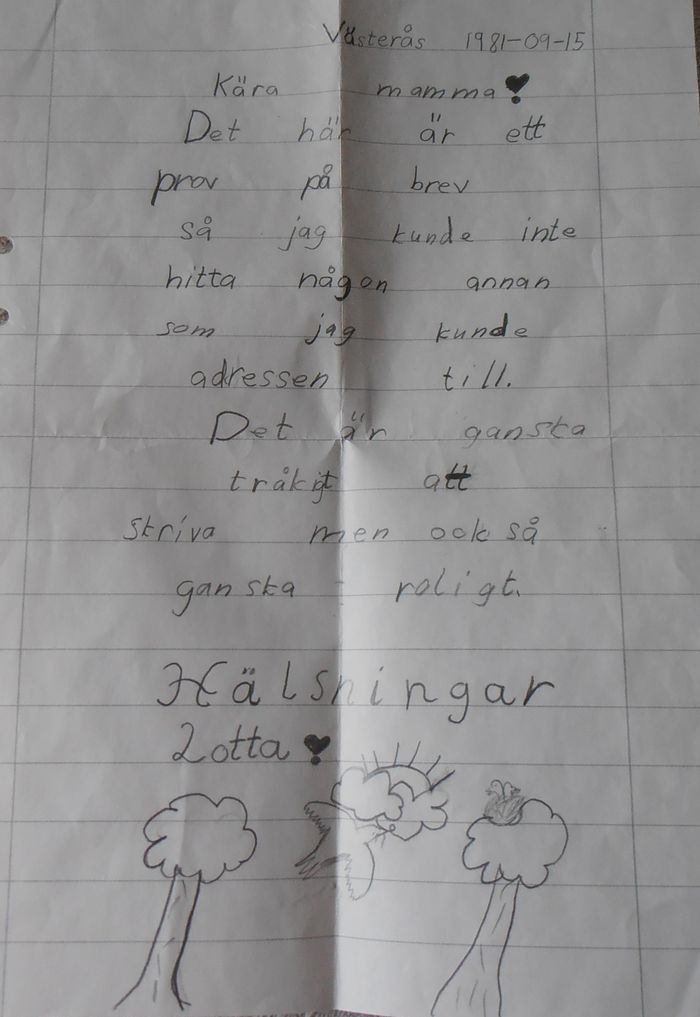 Västerås 1981-09-15
Kära mamma!
Det här är ett
prov på brev
så jag kunde inte
hitta någon annan
som jag kunde
adressen till.
Det är ganska
tråkigt att
skriva men ock så
ganska roligt.
Hälsningar
Lotta!